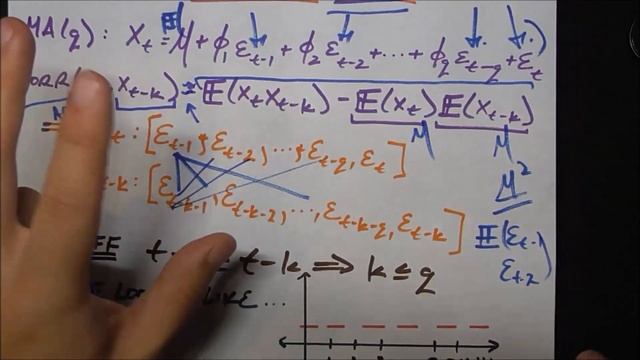 MA(q): X_t = μ + ϕ_1 ε_{t-1} + ϕ_2 ε_{t-2} + ... + ϕ_q ε_{t-q} + ε_t)
𝔼
X_{t-k}) = 𝔼(X_t X_{t-k}) - 𝔼(X_t) 𝔼(X_{t-k})
μ μ
t: [ε_{t-1}, ε_{t-2}, ..., ε_{t-q}, ε_t]
μ²
-k: [ε_{t-k-1}, ε_{t-k-2}, ..., ε_{t-k-q}, ε_{t-k}]
𝔼(ε_{t-1}
ε_{t-2}
t-k ⟹ k ≤ q
LIKE...